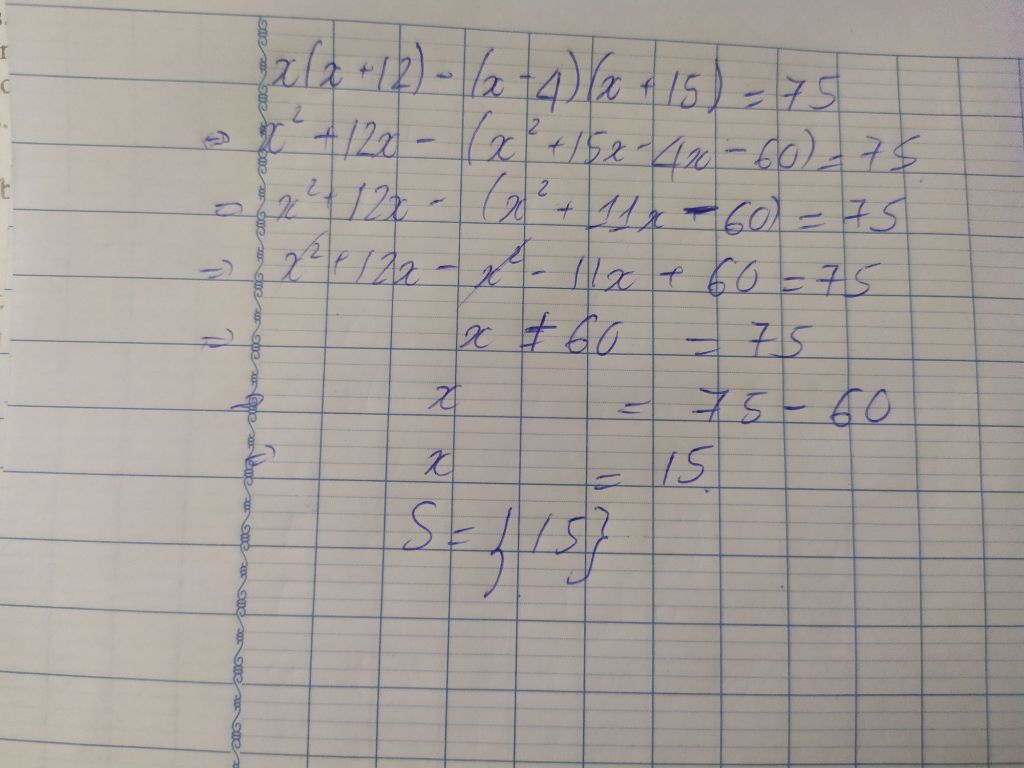 x(x+12)-(x-4)(x+15)=75
⇒ x²+12x-(x²+15x-4x-60)=75
⇒ x²+12x-(x²+11x-60)=75
⇒ x²+12x-x²-11x+60=75
⇒ x+60=75
⇒ x=75-60
⇒ x=15
S={15}